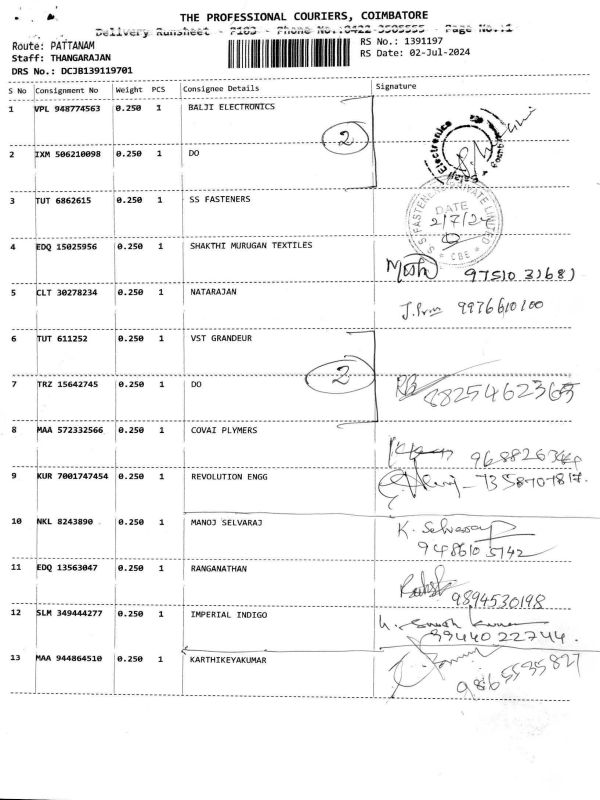 THE PROFESSIONAL COURIERS, COIMBATORE
Delivery Runsheet - P183 - Phone No.:0422-3505555 - Page No.:1
Route: PATTANAM
RS No.: 1391197
Staff: THANGARAJAN
RS Date: 02-Jul-2024
DRS No.: DCJB139119701
S No Consignment No Weight PCS Consignee Details Signature
1 VPL 948774563 0.250 1 BALJI ELECTRONICS
2
Balaji Electronics
2 IXM 506210098 0.250 1 DO
3 TUT 6862615 0.250 1 SS FASTENERS
S S FASTENERS PRIVATE LIMITED
DATE
2/7/24
* CBE *
4 EDQ 15025956 0.250 1 SHAKTHI MURUGAN TEXTILES
97510 31681
5 CLT 30278234 0.250 1 NATARAJAN
9976610100
6 TUT 611252 0.250 1 VST GRANDEUR
2
7 TRZ 15642745 0.250 1 DO
8825462365
8 MAA 572332566 0.250 1 COVAI PLYMERS
9 KUR 7001747454 0.250 1 REVOLUTION ENGG
7358707817.
10 NKL 8243890 0.250 1 MANOJ SELVARAJ
K. Selvaraj
9486105142
11 EDQ 13563047 0.250 1 RANGANATHAN
9894530198
12 SLM 349444277 0.250 1 IMPERIAL INDIGO
99440 22744.
13 MAA 944864510 0.250 1 KARTHIKEYAKUMAR
9865535827